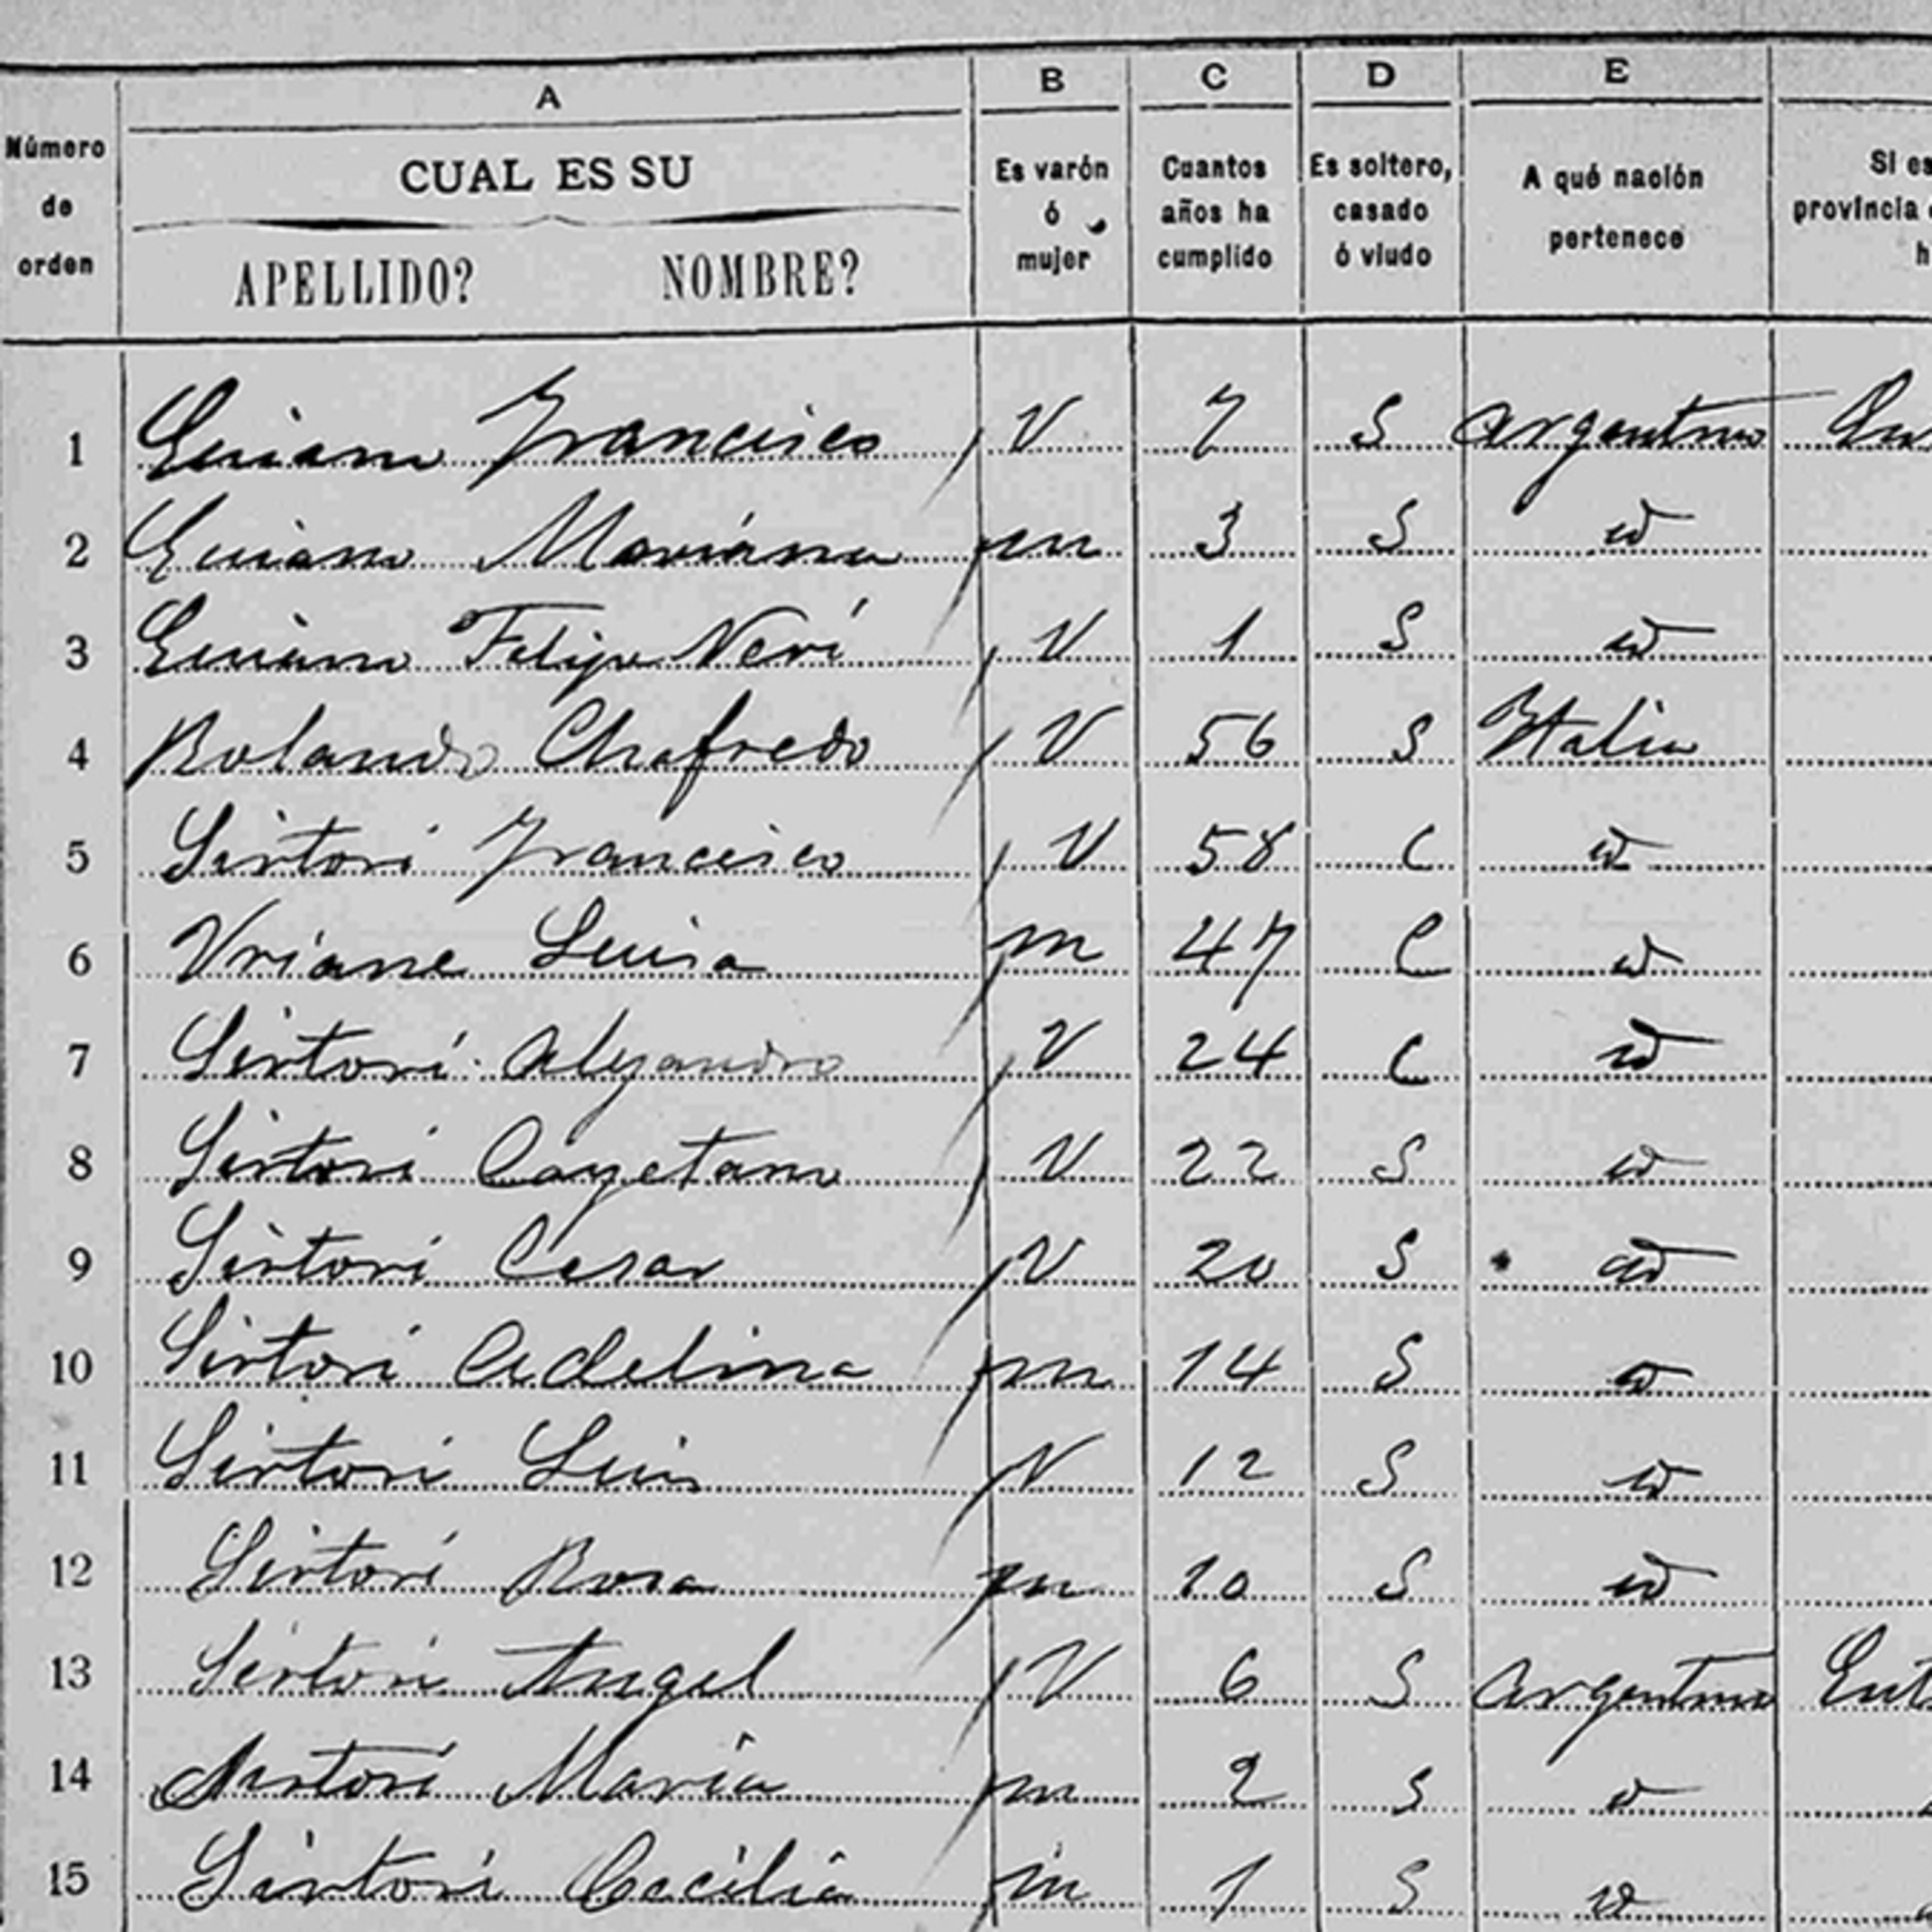 A B C D E
Número de orden
CUAL ES SU
APELLIDO? NOMBRE?
Es varón ó mujer
Cuantos años ha cumplido
Es soltero, casado ó viudo
A qué nación pertenece
Si es
provincia
h
1 Francisco V 7 S Argentino
2 Mariana m 3 S id
3 Felipe Neri V 1 S id
4 Rolando Chafredo V 56 S Italia
5 Sirtori Francisco V 58 C id
6 Vriane Luisa m 47 C id
7 Sirtori Alejandro V 24 C id
8 Sirtori Cayetano V 22 S id
9 Sirtori Cesar V 20 S id
10 Sirtori Adelina m 14 S id
11 Sirtori Luis V 12 S id
12 Sirtori Rosa m 10 S id
13 Sirtori Angel V 6 S Argentino Ent
14 Sirtori Maria m 2 S id
15 Sirtori Cecilia m 1 S id